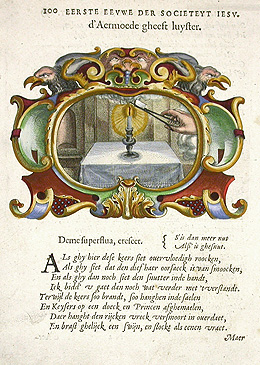 100 EERSTE EEUWE DER SOCIETEYT IESV.
d'Aermoede gheeft luyster.
Deme superflua, crescet.
S'is dan meer nut
Als' is ghesnut.
ALs ghy hier dese keers siet overvloedigh roocken,
Als ghy siet dat den dief haer oorsaeck is van smoocken,
En als ghy dan noch siet den snutter inde handt,
Ick bidd' u gaet den noch wat verder met 't verstandt.
Terwijl de keers soo brandt, soo hanghen inde saelen
En Keysers op een doeck en Princen afghemaelen,
Daer hanght den rijcken vreck versmoort in overdaet,
En brast ghelijck een swijn, en slockt als eenen vraet.
Maer